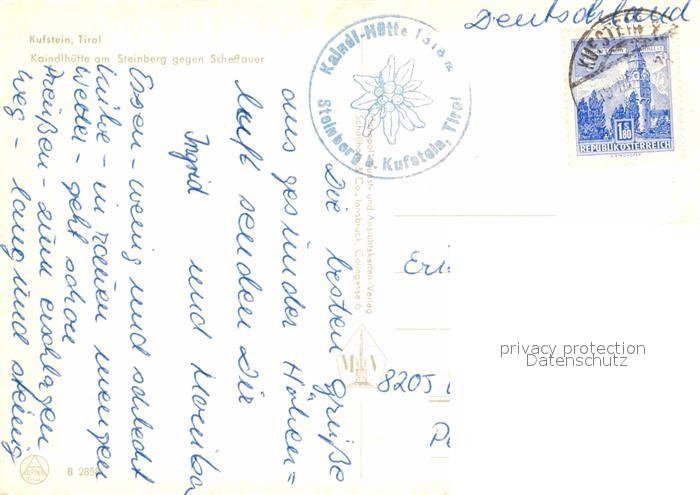 Kufstein, Tirol
Kaindlhütte am Steinberg gegen Scheffauer
Deutschland
Kaindl-Hütte 1318 m
Steinberg b. Kufstein, Tirol
KUFSTEIN
1.80
REPUBLIK ÖSTERREICH
Die besten Grüße
aus gesunder Höhen=
luft senden Dir
Ingrid und Monika
Essen - wenig und schlecht
Milch - in rauen mengen
Wetter - geht schon
Preußen - zum erschlagen
Weg - lang und steinig
Kunst- und Ansichtskarten-Verlag
Co., Innsbruck, Colingasse 6
8205
B 285
privacy protection
Datenschutz